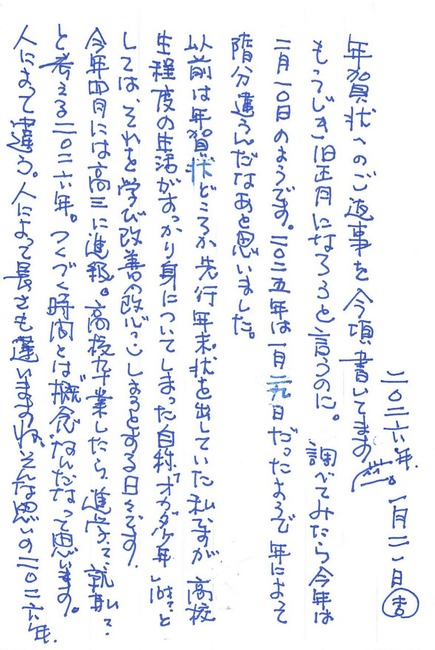 二〇二六年.一月二一日吉
年賀状へのご返事を今頃書いてます。
もうじき旧正月になろうと言うのに。調べてみたら今年は
二月一〇日のようです。二〇二五年は一月二九日だったようで年によって
随分違うんだなあと思いました。
以前は年賀状どころか先行年末状を出していた私ですが高校
生程度の生活がすっかり身についてしまった自称「オカダ少年」は?と
しては、それを学び改善の改心っこしようとする日々です.
今年四月には高三に進級。高校卒業したら進学?就職?
と考える二〇二六年。つくづく時間とは概念なんだなって思います。
人によって違う。人によって長さも違いますね。そんな思いの二〇二六年.